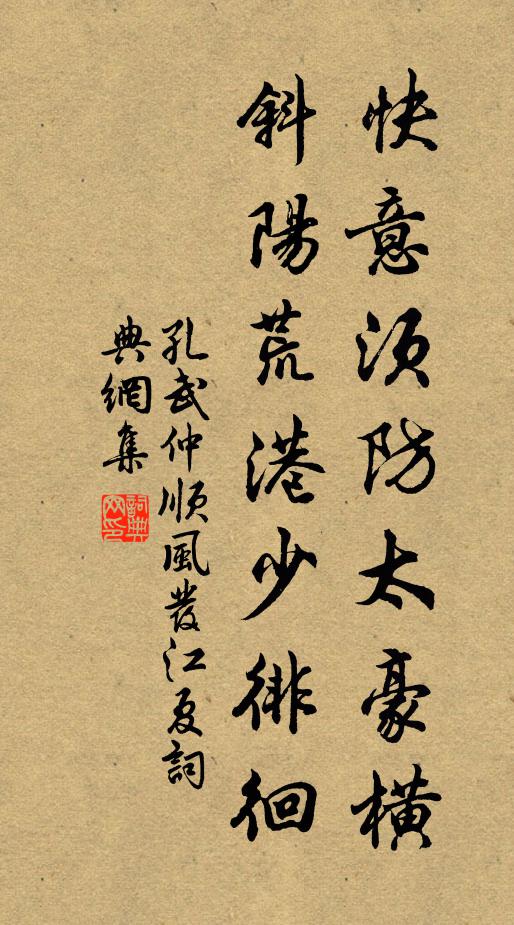 快意須防太豪橫
斜陽荒港少徘徊
孔武仲順風發江夏詞
典網集
詞典網印